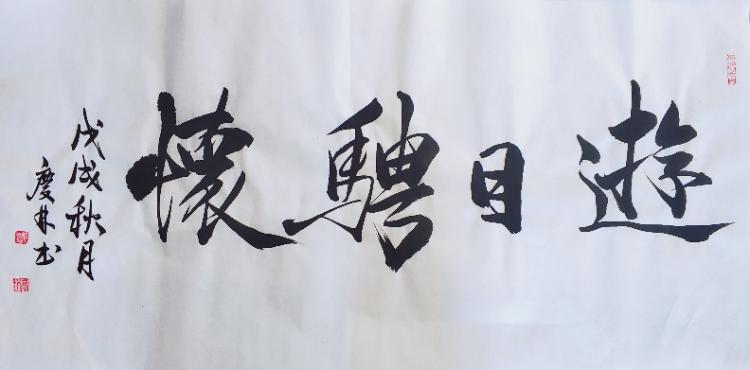 遊目騁懷
戊戌秋月
慶林书